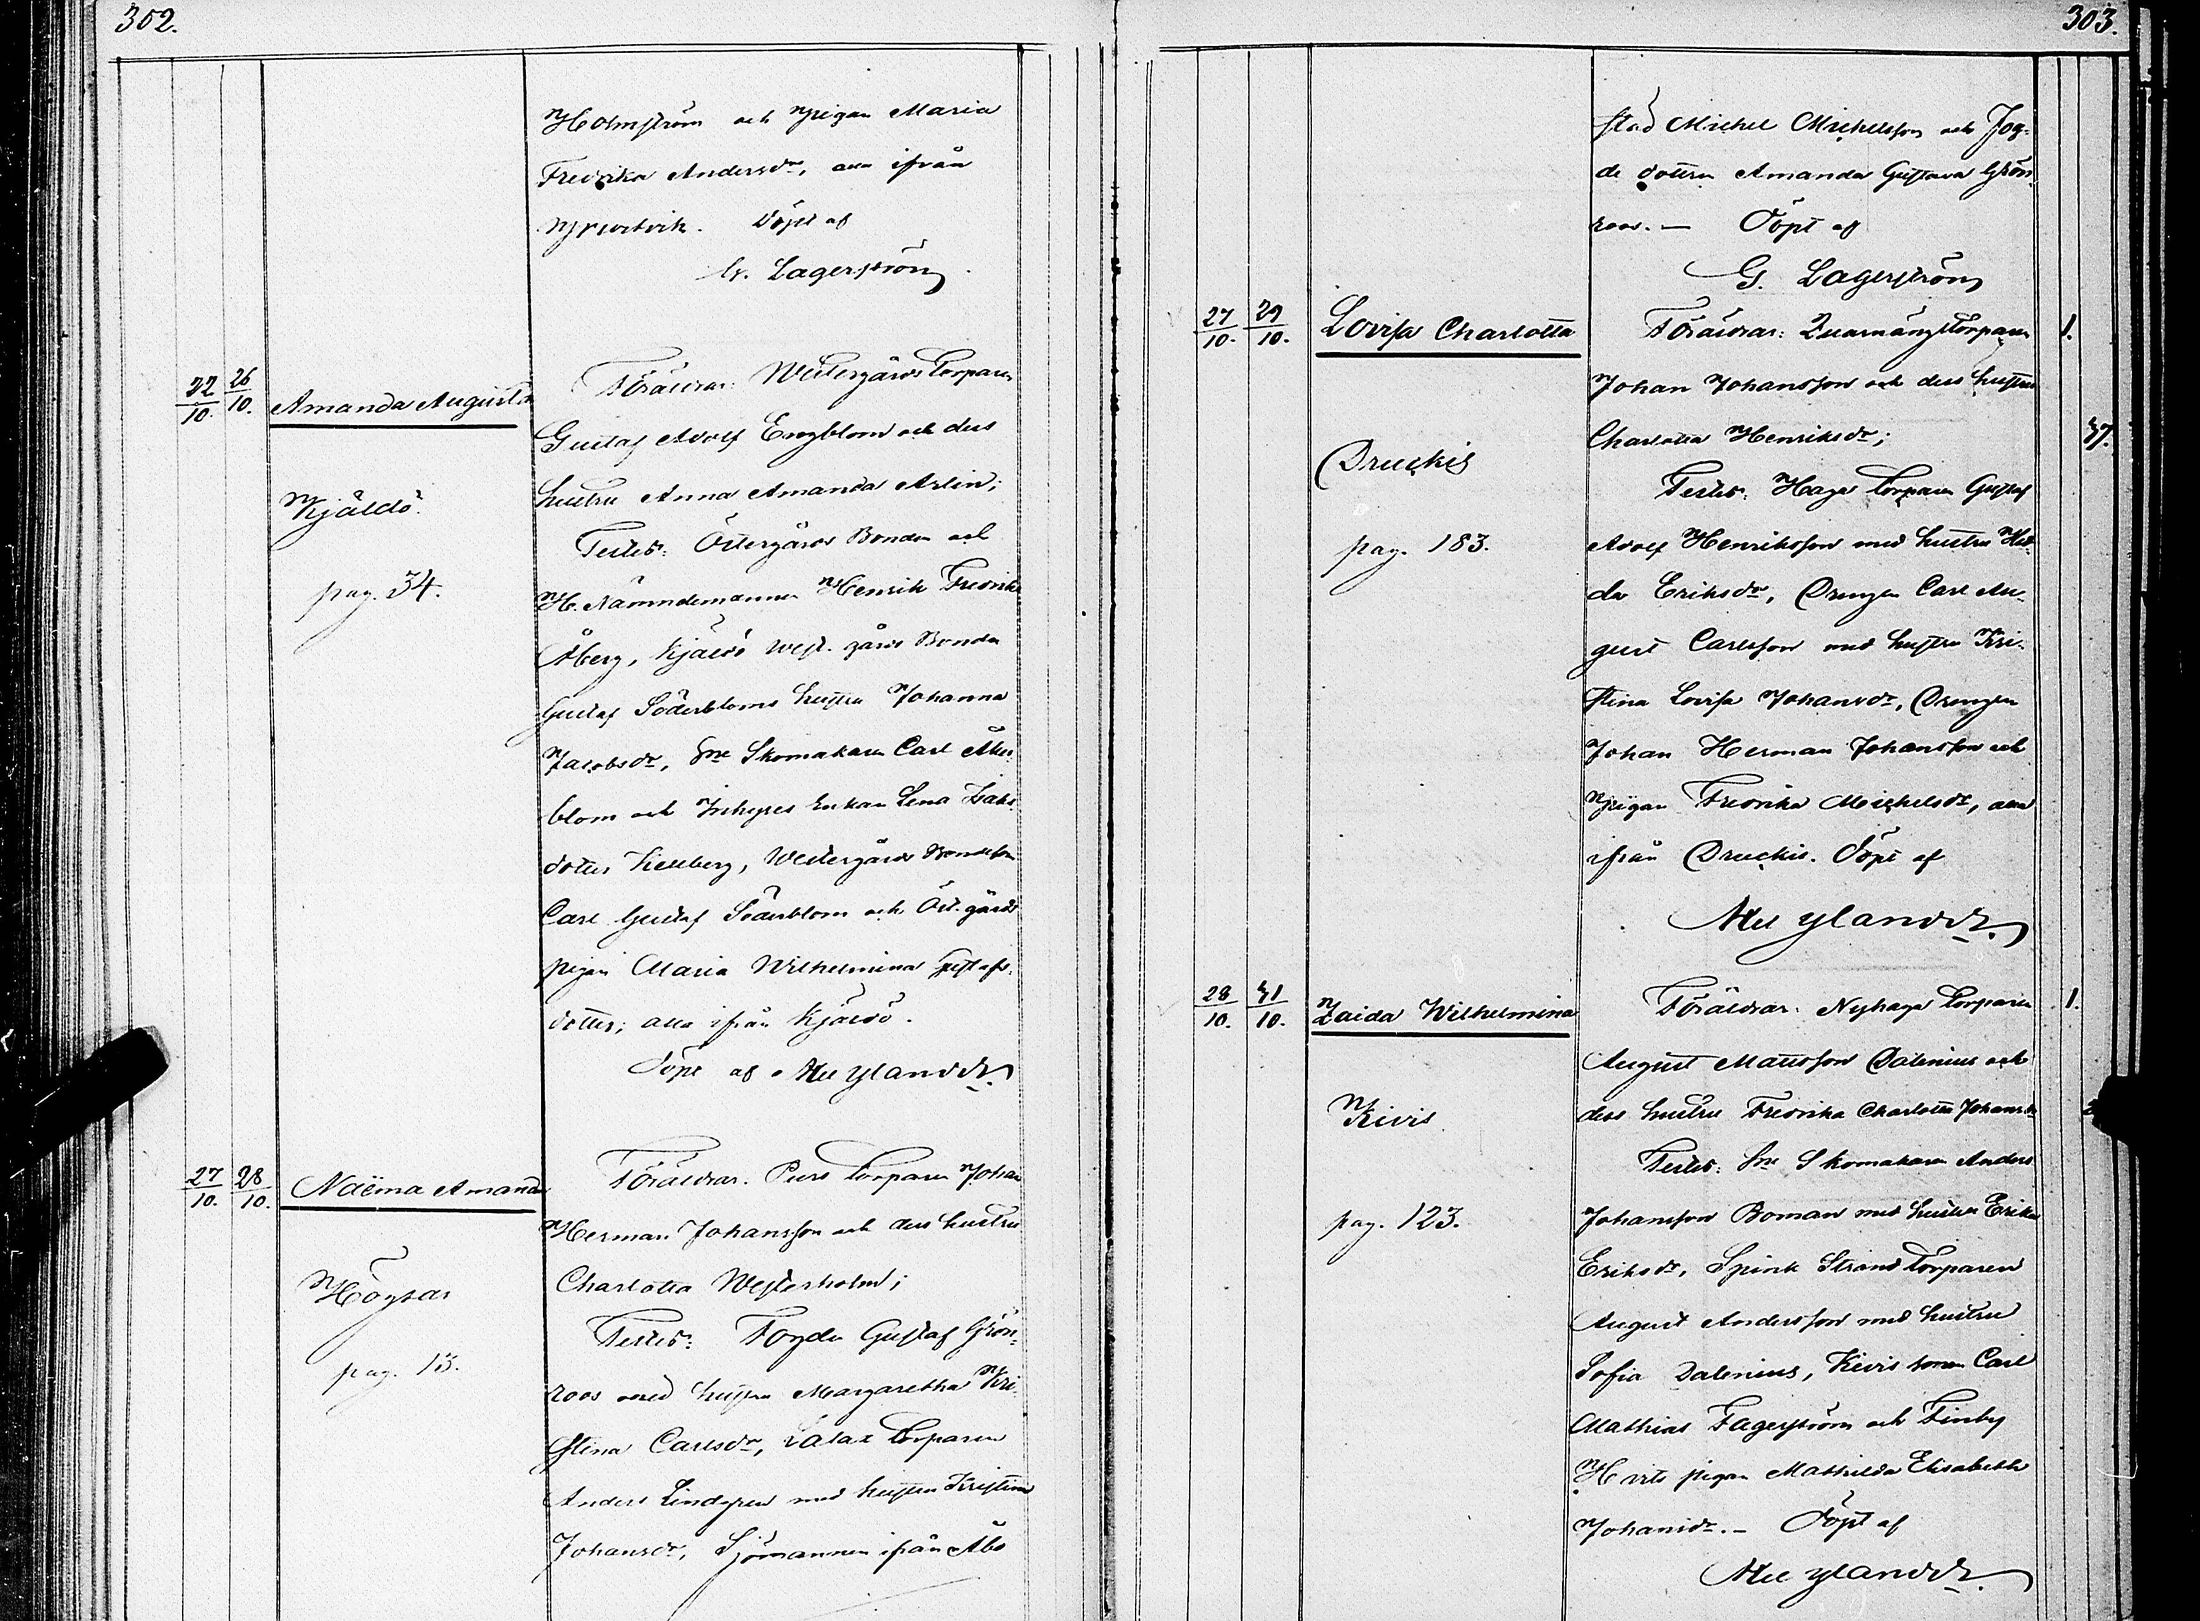 302.
Holmström och pigan Maria
Fredrika Andersdr, alla ifrån
Döpt af
G. Lagerström
22/10. 26/10. Amanda Augusta
Kjäldö
pag. 34.
Föräldrar: Westergårds Torparen
Gustaf Adolf Engblom och dess
hustru Anna Amanda Arlin;
Testes: Östergårds Bonden och
H. Nämndemannen Henrik Fredrik
Åberg, Kjäldö West. gårds Bonden
Gustaf Söderbloms hustru Johanna
Jacobsdr, Sne Skomakaren Carl Åker-
blom och Inhyses Enkan Lena Isaks
dotter Kellberg, Westergårds Bondeson
Carl Gustaf Söderblom och Öst. gårds
pigan Maria Wilhelmina Gustafs-
dotter; alla ifrån Kjäldö.
Döpt af
27/10. 28/10. Naëma Amanda
Högsar
pag. 13.
Föräldrar: Pers Torparen Johan
Herman Johansson och dess hustru
Charlotta Westerholm;
Testes: Fogden Gustaf Grön-
roos med hustru Margaretha Kri-
stina Carlsdr, Torparen
Anders Lindgren med hustru Kristina
Johansdr, Sjömannen ifrån Åbo
303.
stad Michel Michelsson och Fog-
de dottern Amanda Gustava Grön-
roos. — Döpt af
G. Lagerström
27/10. 29/10. Lovisa Charlotta
Druckis
pag. 183.
Föräldrar: Torparen
Johan Johansson och dess hustru
Charlotta Henriksdr;
Testes: Haga Torparen Gustaf
Adolf Henriksson med hustru Hed-
da Eriksdr, Drengen Carl Au-
gust Carlsson med hustru Kri-
stina Lovisa Johansdr, Drengen
Johan Herman Johansson och
Pigan Fredrika Michelsdr, alla
ifrån Druckis. Döpt af
1.
37.
28/10. 31/10. Zaida Wilhelmina
Kivis
pag. 123.
Föräldrar: Nyhaga Torparen
August Mattsson Dalenius och
dess hustru Fredrika Charlotta Johansdr
Testes: Sne Skomakaren Anders
Johansson Boman med hustru Erika
Eriksdr, Spink Strand Torparen
August Andersson med hustru
Sofia Dalenius, Kivis sonen Carl
Mathias Fagerström och Finby
pigan Mathilda Elisabeth
Johansdr. — Döpt af
1.